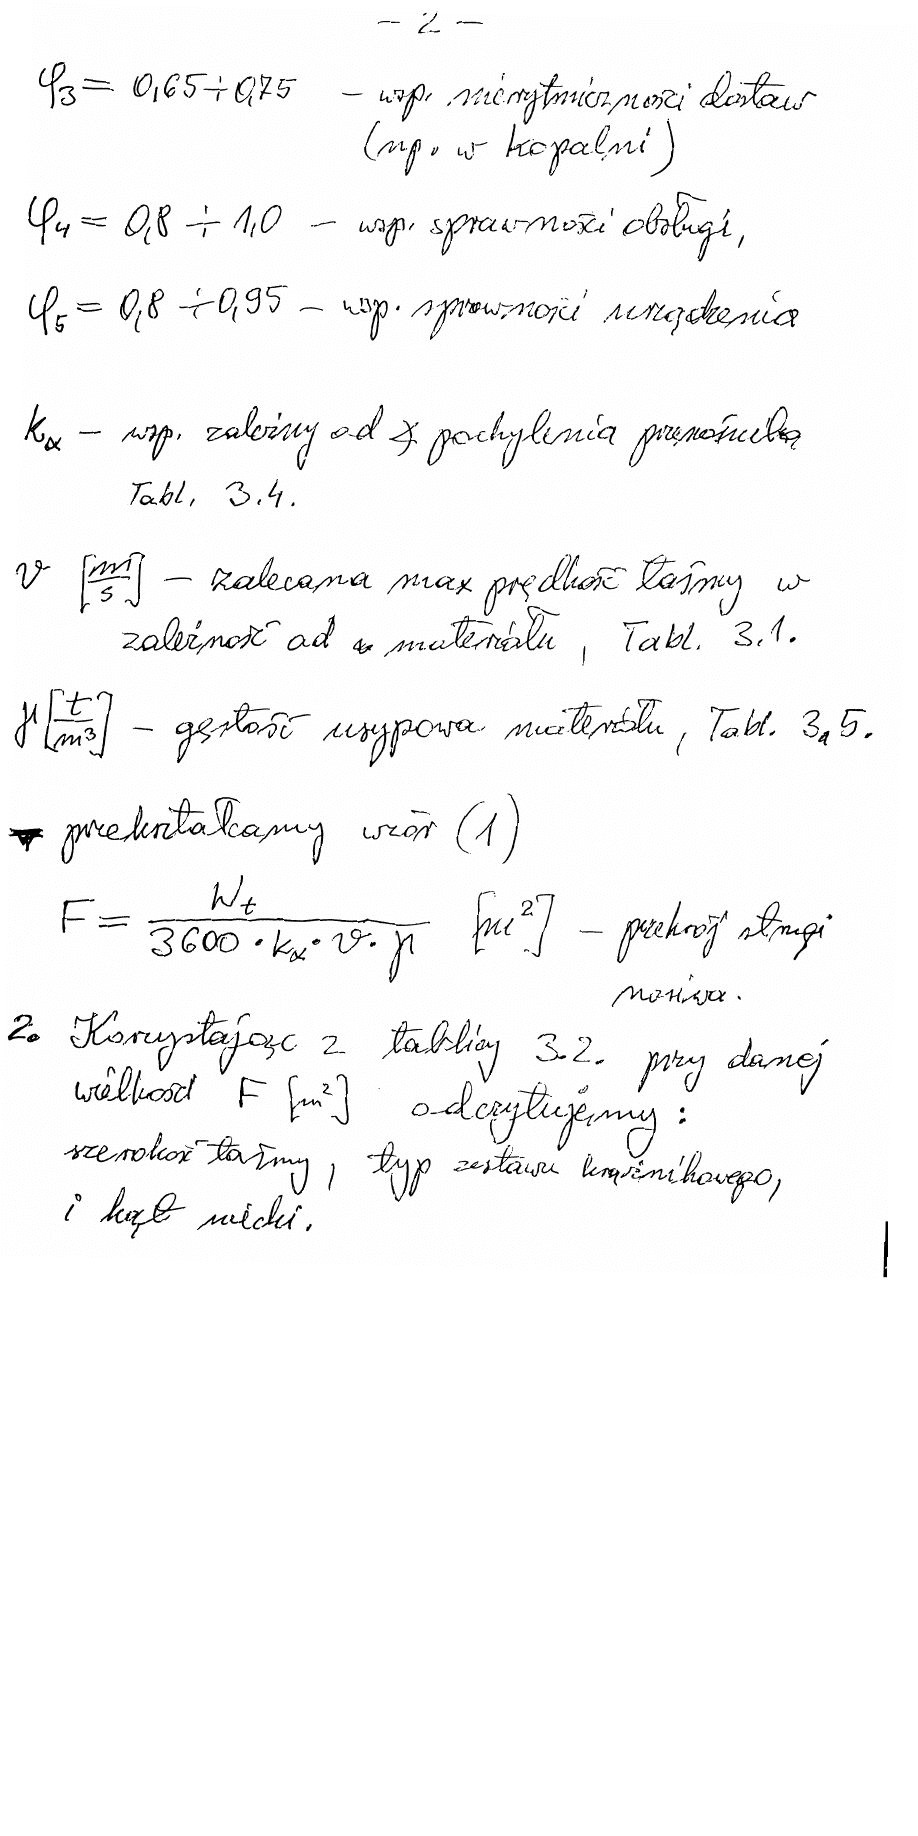 - 2 -
φ₃ = 0,65÷0,75 - wsp. nierytmiczności dostaw
(np. w kopalni)
φ₄ = 0,8 ÷ 1,0 - wsp. sprawności obsługi,
φ₅ = 0,8 ÷ 0,95 - wsp. sprawności urządzenia
kα - wsp. zależny od ∢ pochylenia przenośnika
Tabl. 3.4.
v [m/s] - zalecana max prędkość taśmy w
zależność od materiału, Tabl. 3.1.
γ [t/m³] - gęstość usypowa materiału, Tabl. 3.5.
przekształcamy wzór (1)
F = Wt / (3600 · kα · v · γ) [m²] - przekrój strugi
nosiwa.
2. Korzystając z tablicy 3.2. przy danej
wielkości F [m²] odczytujemy:
szerokość taśmy, typ zestawu krążnikowego,
i kąt niecki.